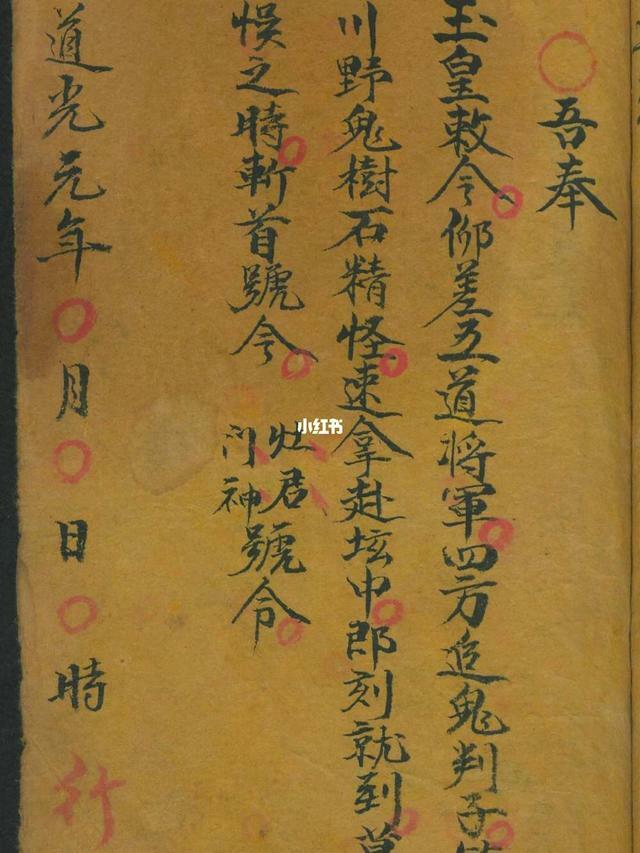 吾奉
玉皇敕令仰差五道将軍四方追鬼判子
川野鬼樹石精怪速拿赴坛中郎刻就到
悮之時斬首號令
灶君
门神
號令
道光元年〇月〇日〇時行
小红书